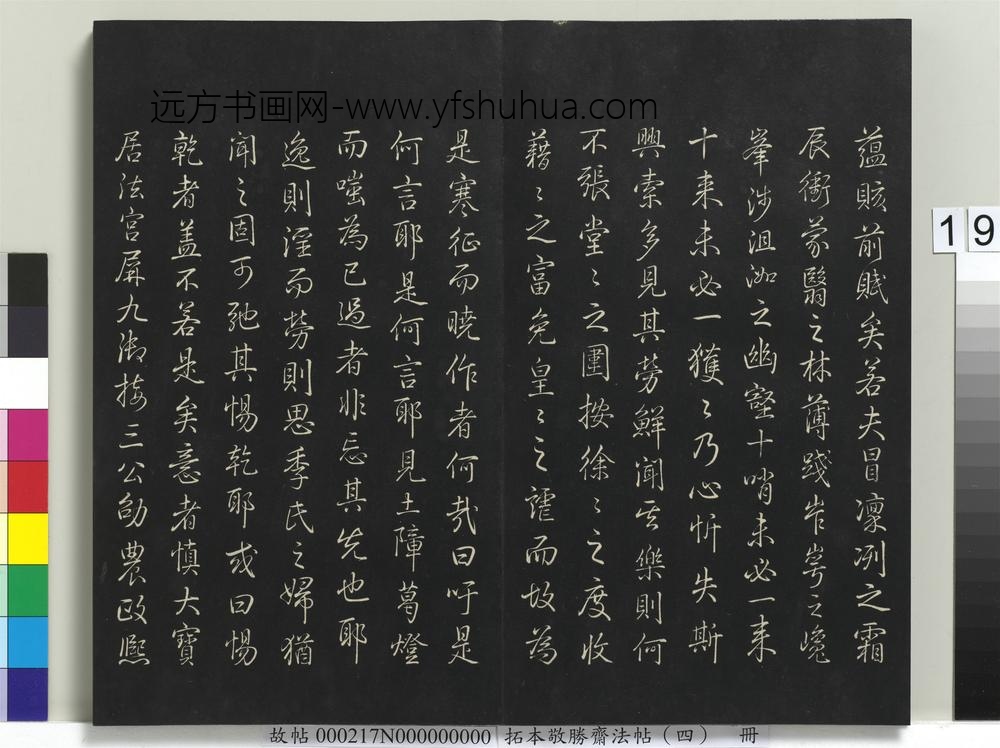 远方书画网-www.yfshuhua.com
蘊賅前賦矣若夫冒凛冽之霜
辰衝蒙翳之林薄踐岝崿之巉
峯涉沮洳之幽壑十哨未必一來
十來未必一獲〻乃心忻失斯
興索多見其勞鮮聞其樂則何
不張堂〻之圍按徐〻之度收
藉〻之富免皇〻之謹而故為
是寒征而曉作者何哉曰吁是
何言耶是何言耶見土障葛燈
而嗤為已過者非忘其先也耶
逸則淫而勞則思季氏之婦猶
聞之固可弛其惕乾耶或曰惕
乾者盖不若是矣意者慎大寶
居法宮屏九御接三公劭農政熙
19
故帖 000217N000000000 拓本敬勝齋法帖（四） 冊